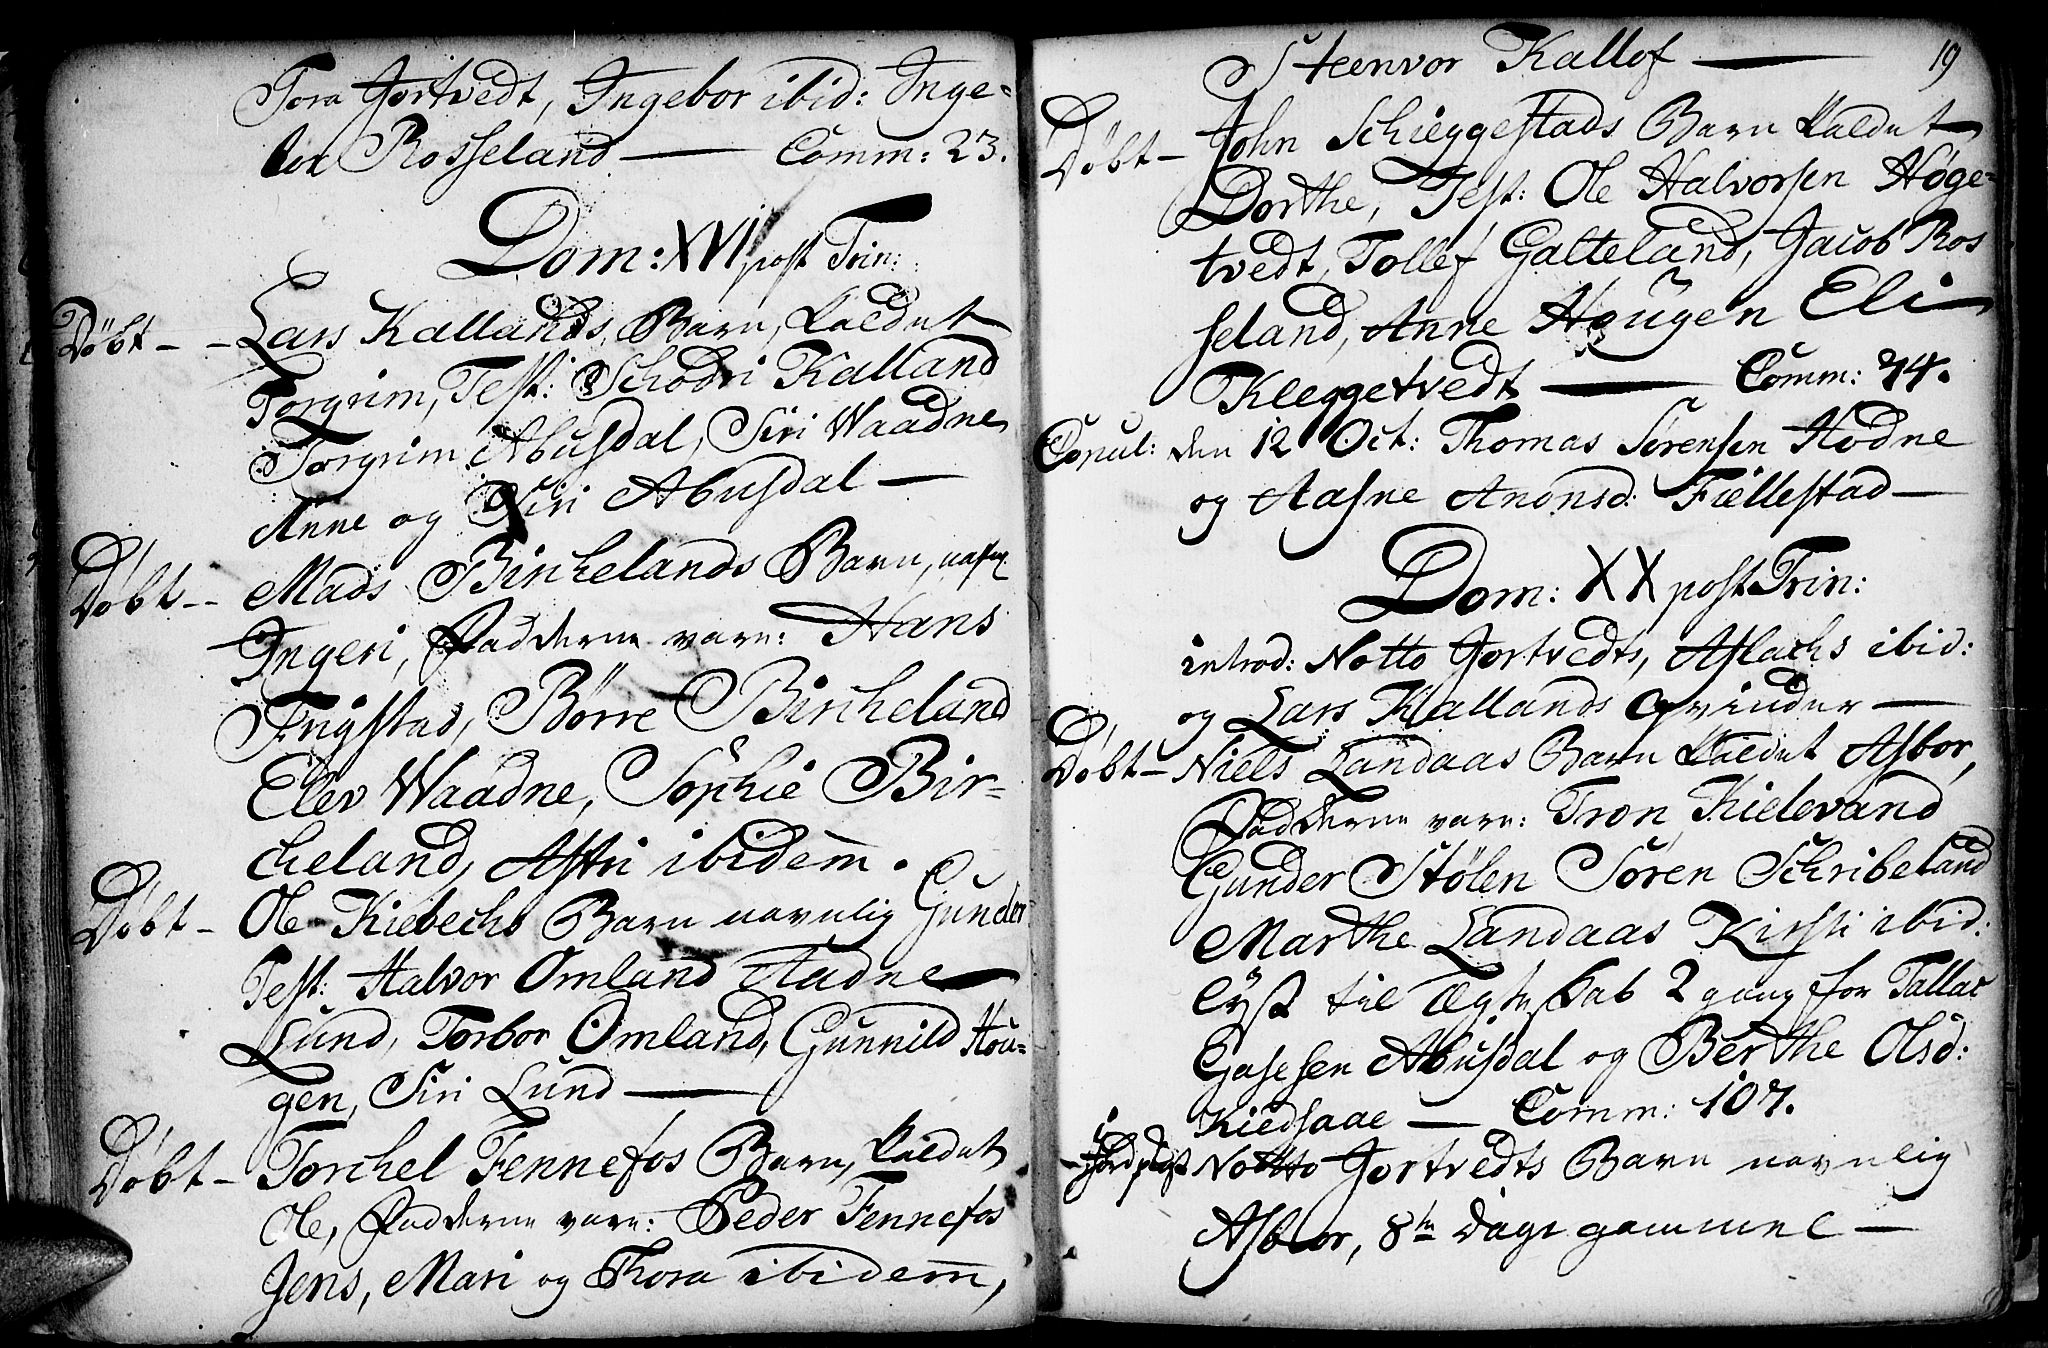 Tora Gortvedt, Ingebor ibid: Inge-
bor Rosseland — Comm: 23.
Dom: XVI post Trin:
Døbt - - Lars Kallands Barn, kaldet
Torgrim, Test: Schodri Kalland
Torgrim Abusdal, Siri Waadne
Anne og Siri Abusdal —
Døbt - - Mads Birchelands Barn, nafnl:
Ingeri, Fadderne vare: Hans
Frigstad, Børre Bircheland
Elev Waadne, Sophie Bir-
cheland, Astri ibidem.
Døbt - Ole Kiebechs Barn navnlig Gunder
Test: Halvor Omland Aadne
Lund, Torbor Omland, Gunnild Hou-
gen, Siri Lund —
Døbt - Torchel Fennefos Barn, kaldet
Ole, Fadderne vare: Peder Fennefos
Jens, Mari og Thora ibidem,
19
Steenvor Kallof —
Døbt - John Schieggestads Barn kaldet
Dorthe, Test: Ole Halvorsen Høge-
tvedt, Tollef Galteland, Jacob Ros
seland, Anne Hougen Eli
Kleggetvedt — Comm: 74.
Copul: den 12 Oct: Thomas Sørensen Hodne
og Aasne Anonsd: Fiellestad —
Dom: XX post Trin:
introd: Notto Gortvedts, Aslachs ibid:
og Lars Kallands Qvinder —
Døbt - Niels Landaas Barn kaldet Asbor,
Fadderne vare: Tron Kielevand
Gunder Stølen Søren Schribeland
Marthe Landaas Kirsti ibid:
lyst til Ægteskab 2 gang for Tallac
Gasesen Abusdal og Berthe Olsd:
Kiedsaae — Comm: 107.
Jordpaagst Notto Gortvedts Barn navnlig
Asbior, 8te Dage gammel —